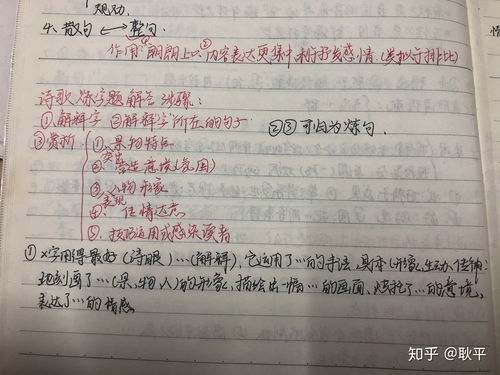 规动.
4. 散句 ←→ 整句.
作用: ①朗朗上口 ②内容表达更集中 利于抒发感情 (类似于排比)
诗歌炼字题解答步骤:
①解释字 ②解释字所在的句子
②③可白为炼句.
③赏析 1. 景物特点
突出
2. 营造意境(氛围)
3. 人物形象
表现
4. 传情达意
5. 技巧运用或感染读者
①X字用得最好(诗眼)…(解释), 它运用了…的手法, 具体(形象、生动、传神)
地刻画了…(景、物、人)的形象, 描绘出一幅…的画面, 烘托了…的意境,
表达了…的情感.
知乎 @耿平